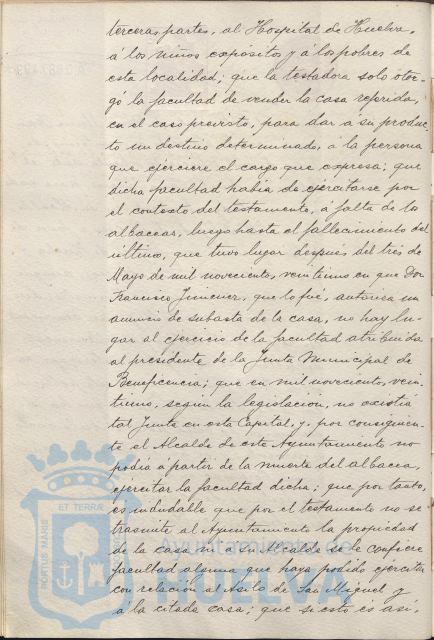 terceras partes, al Hospital de Huelva,
á los niños expósitos y á los pobres de
esta localidad; que la testadora solo otor-
gó la facultad de vender la casa referida,
en el caso previsto, para dar á su produc-
to un destino determinado, á la persona
que ejerciere el cargo que expresa; que
dicha facultad habia de ejercitarse por
el contexto del testamento, á falta de los
albaceas, luego hasta el fallecimiento del
último, que tuvo lugar después del tres de
Mayo de mil novecientos veintiuno en que Don
Francisco Jimenez, que lo fué, autoriza un
anuncio de subasta de la casa, no hay lu-
gar al ejercicio de la facultad atribuida
al presidente de la Junta Municipal de
Beneficencia; que en mil novecientos vein-
tiuno, según la legislación, no existia
tal Junta en esta Capital, y, por consiguien-
te el Alcalde de este Ayuntamiento no
podia a partir de la muerte del albacea,
ejercitar la facultad dicha; que por tanto,
es indudable que por el testamento no se
trasmite al Ayuntamiento la propiedad
de la casa ni a su Alcalde se le confiere
facultad alguna que haya podido ejercitar
con relación al Asilo de San Miguel y
á la citada casa; que si esto es asi,
PORTUS MARIS ET TERRÆ
Ayuntamiento de
HUELVA